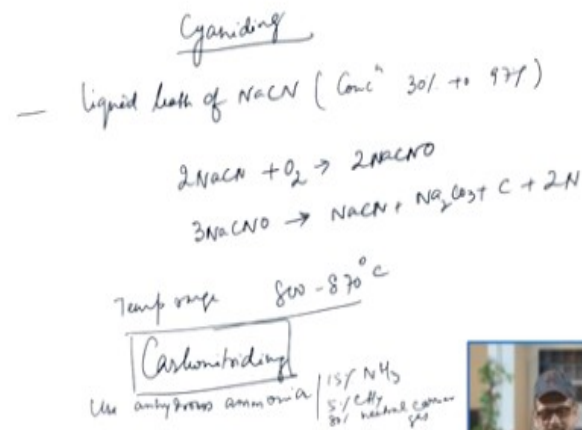 Cyaniding
— Liquid bath of NaCN ( Concⁿ 30% to 97% )
2NaCN + O₂ → 2NaCNO
3NaCNO → NaCN + Na₂CO₃ + C + 2N
Temp range 800 - 870°C
Carbonitriding
Use anhydrous ammonia / 15% NH₃
5% CH₄
80% neutral carrier
gas